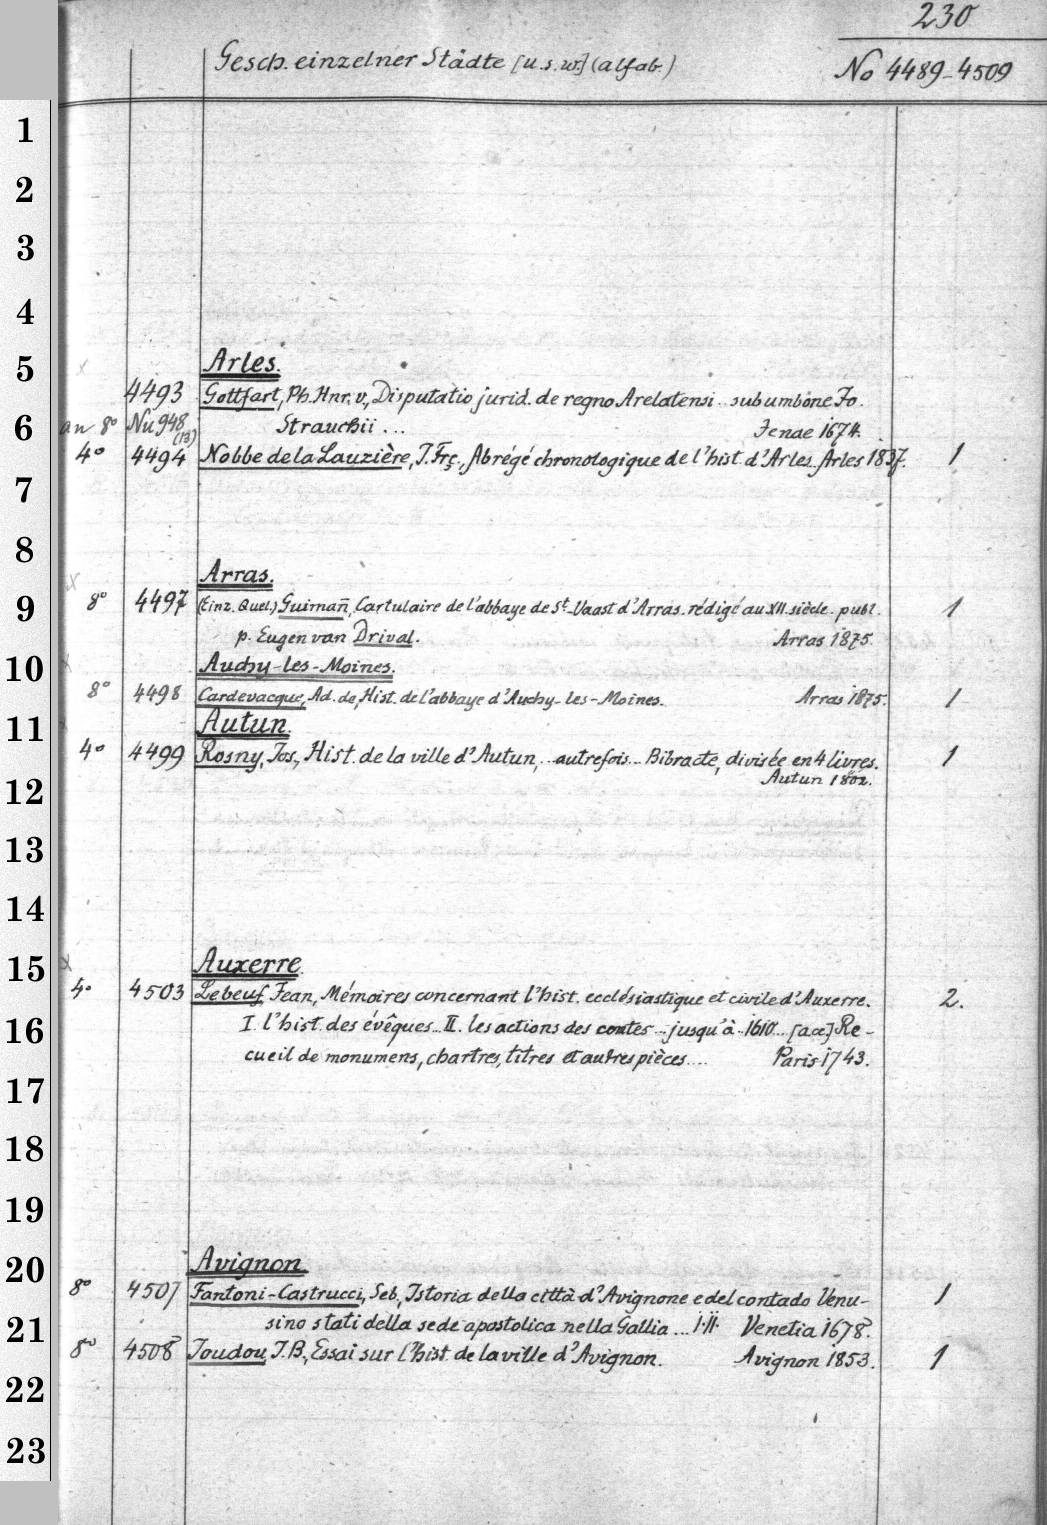 230
Gesch. einzelner Städte [u.s.w.] (alfab.)
No 4489-4509
1
2
3
4
5
Arles.
4493 Gottfart, Ph. Hnr. v., Disputatio jurid. de regno Arelatensi .. sub umbone Jo.
6
an 8° Nu 948 (13) Strauchii ... Jenae 1674.
4° 4494 Nobbe de la Lauzière, J. Frç., Abrégé chronologique de l'hist. d'Arles. Arles 1837. 1
7
8
Arras.
9
8° 4497 (Einz. Quel.) Guimañ, Cartulaire de l'abbaye de St. Vaast d'Arras. rédigé au XII. siècle. publ. 1
p. Eugen van Drival. Arras 1875.
10
Auchy-les-Moines.
8° 4498 Cardevacque, Ad. de, Hist. de l'abbaye d'Auchy-les-Moines. Arras 1875. 1
11
Autun.
4° 4499 Rosny, Jos., Hist. de la ville d'Autun, ... autrefois ... Bibracte, divisée en 4 livres. 1
Autun 1802.
12
13
14
15
Auxerre
4° 4503 Lebeuf, Jean, Mémoires concernant l'hist. ecclésiastique et civile d'Auxerre. 2.
16
I. l'hist. des évêques .. II. les actions des contes ... jusqu'à 1610 ... [acc.] Re-
cueil de monumens, chartres, titres et autres pièces .... Paris 1743.
17
18
19
20
Avignon
8° 4507 Fantoni-Castrucci, Seb., Istoria della città d'Avignone e del contado Venu- 1
21
sino stati della sede apostolica nella Gallia ... I.II. Venetia 1678.
8° 4508 Joudou J.B., Essai sur l'hist. de la ville d'Avignon. Avignon 1853. 1
22
23